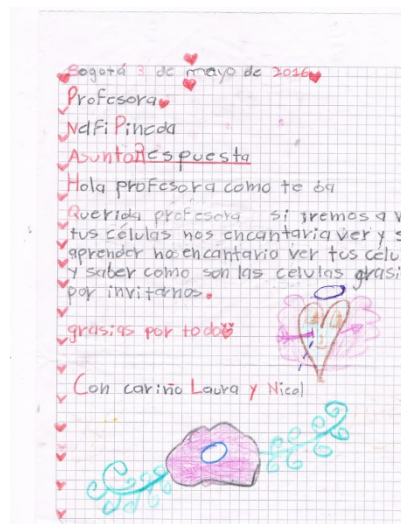 Bogotá 3 de mayo de 2016
Profesora
Nelfi Pineda
Asunto Respuesta
Hola profesora como te ba
Querida profesora si iremos a v
tus células nos encantaria ver y s
aprender nos encantario ver tus célu
y saber como son las celulas grasi
por invitarnos.
grasias por todo
Con cariño Laura y Nicol